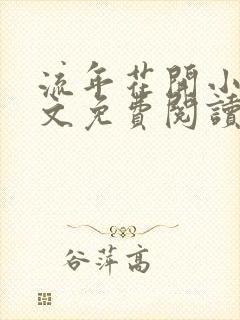 流年花開小
文免費閱讀
谷萍高